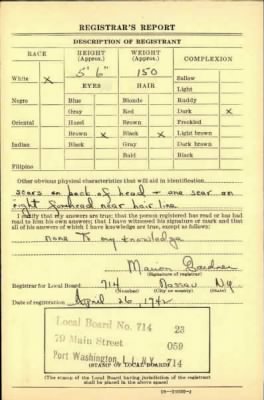 REGISTRAR'S REPORT
DESCRIPTION OF REGISTRANT
RACE HEIGHT (Approx.) WEIGHT (Approx.) COMPLEXION
5' 6" 150
White X Sallow
EYES HAIR Light
Negro Blue Blonde Ruddy
Gray Red Dark X
Oriental Hazel Brown Freckled
Brown X Black X Light brown
Indian Black Gray Dark brown
Bald Black
Filipino
Other obvious physical characteristics that will aid in identification
scars on back of head + one scar on
right forehead near hair line
I certify that my answers are true; that the person registered has read or has had
read to him his own answers; that I have witnessed his signature or mark and that
all of his answers of which I have knowledge are true, except as follows:
none to my knowledge
Marion Gardner
(Signature of registrar)
Registrar for Local Board 714 Nassau N.Y.
(Number) (City or county) (State)
Date of registration April 26, 1942
Local Board No. 714 23
79 Main Street 059
Port Washington, L.I., N.Y. 714
(STAMP OF LOCAL BOARD)
(The stamp of the Local Board having jurisdiction of the registrant
shall be placed in the above space)